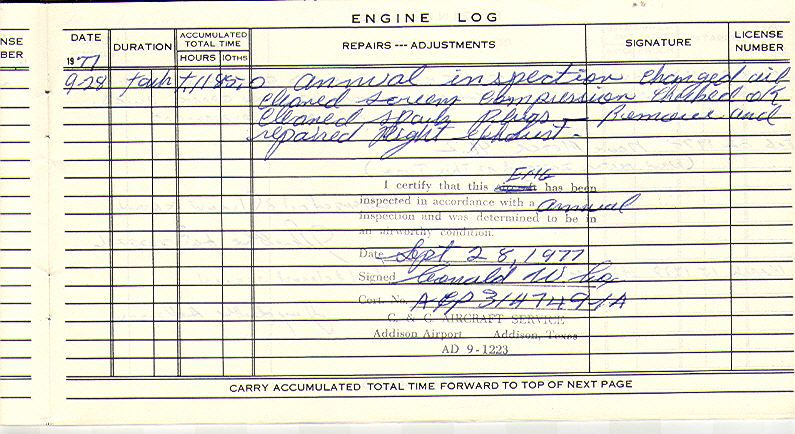 ENGINE LOG
NSE
BER
DATE
1977
DURATION
ACCUMULATED
TOTAL TIME
HOURS
10THS
REPAIRS --- ADJUSTMENTS
SIGNATURE
LICENSE
NUMBER
9-28 tach annual inspection changed oil
cleaned screens compression checked OK
cleaned spark plugs - Remove and
repaired Right exhaust.
ENG
I certify that this aircraft has been
inspected in accordance with a annual
inspection and was determined to be in
an airworthy condition.
Date Sept 28, 1977
Signed W.
Cert. No. A&P 3147491A
C. & C. AIRCRAFT SERVICE
Addison Airport Addison, Texas
AD 9-1223
CARRY ACCUMULATED TOTAL TIME FORWARD TO TOP OF NEXT PAGE